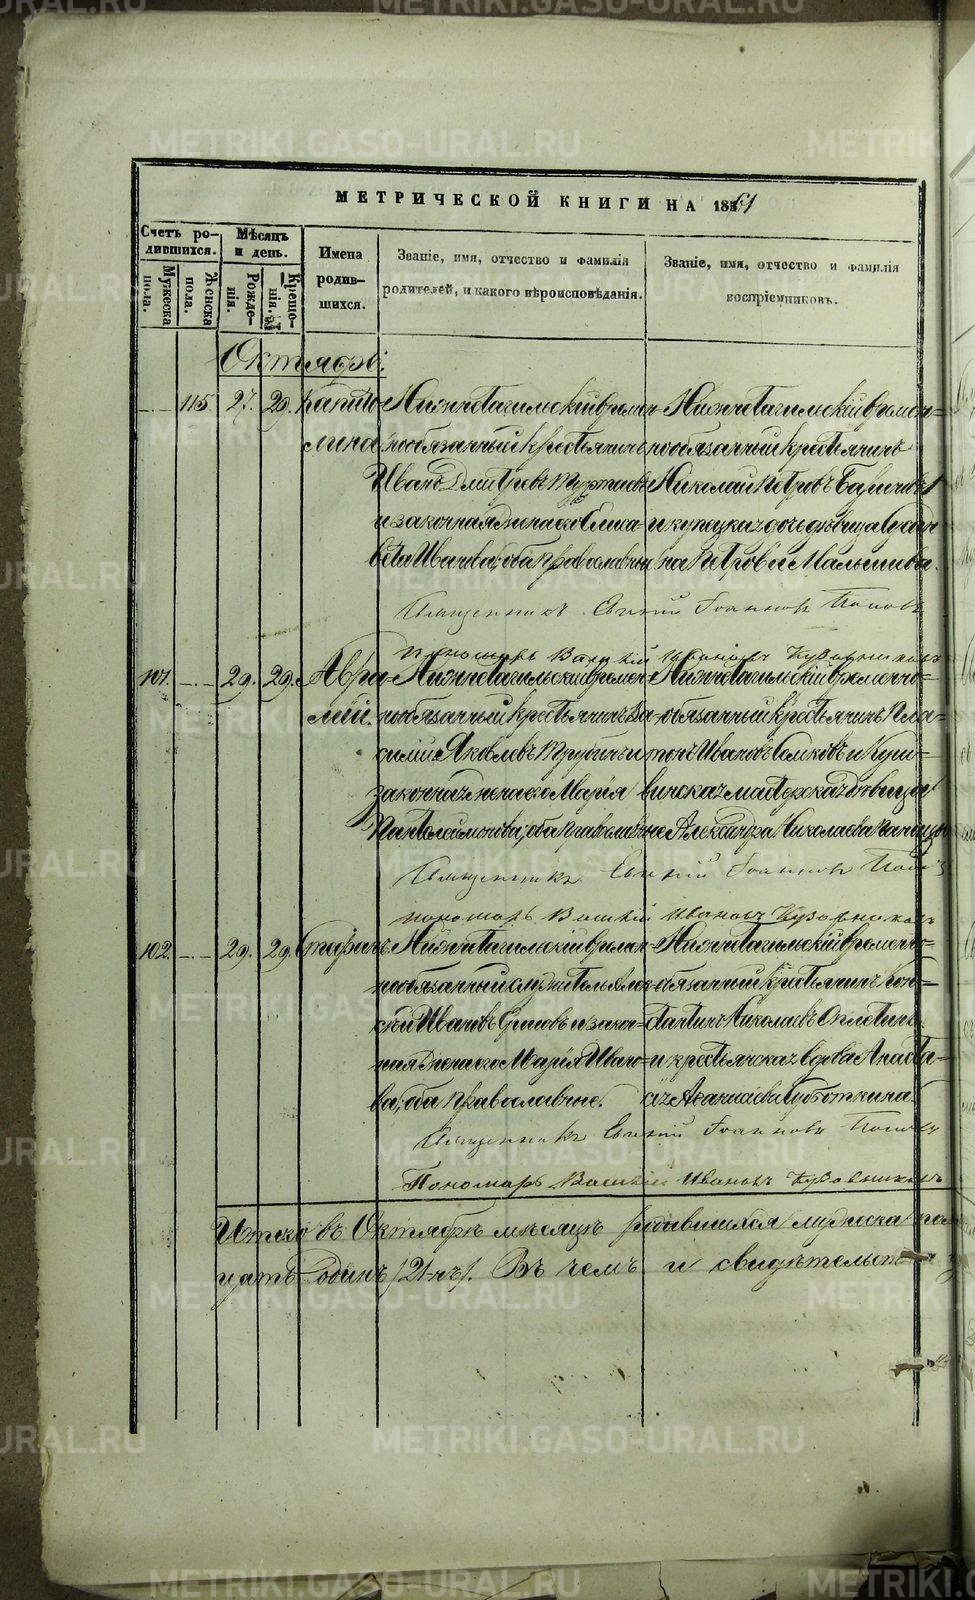 МЕТРИЧЕСКОЙ КНИГИ НА 1861
Счетъ родившихся.
Мужеска пола.
Женска пола.
Мѣсяцъ и день.
Рожденія.
Крещенія.
Имена родившихся.
Званіе, имя, отчество и фамилія родителей, и какого вѣроисповѣданія.
Званіе, имя, отчество и фамилія воспріемниковъ.
Октябрь.
115. 27. 29. Капито-
лина
Нижнетагильскій времен-
нообязанный крестьянинъ
Иванъ Дмитревъ
и законная жена его Елиса-
вета Иванова, оба православные
Нижнетагильскій времен-
нообязанный крестьянинъ
Николай Петровъ
и купецкая дочь дѣвица
на Петрова Малышева.
Священникъ Евгеній Іоанновъ Поповъ
Пономарь Василій Ивановъ Кузовниковъ
101. 29. 29. Авра-
мій.
Нижнетагильскій времен-
нообязанный крестьянинъ Ва-
силій Яковлевъ и
законная жена его Марія
Пантелеимонова, оба православные
Нижнетагильскій временно-
обязанный крестьянинъ Пла-
тонъ Ивановъ и Куш-
винская мастерская дѣвица
Александра Николаева
Священникъ Евгеній Іоанновъ Поповъ
пономарь Василій Ивановъ Кузовниковъ
102. 29. 29. Стефанъ.
Нижнетагильскій времен-
нообязанный служитель Алек-
сѣй Ивановъ и закон-
ная жена его Марія Ивано-
ва, оба православные.
Нижнетагильскій временно-
обязанный крестьянинъ Кон-
стантинъ Николаевъ Оплетинъ
и крестьянская вдова Анаста-
сія Аѳанасіева Субботкина.
Священникъ Евгеній Іоанновъ Поповъ
Пономарь Василій Ивановъ Кузовниковъ
Итого въ Октябрѣ мѣсяцѣ родившихся мужеска
цать одинъ /21-нъ/. Въ чемъ и свидѣтельст
METRIKI.GASO-URAL.RU